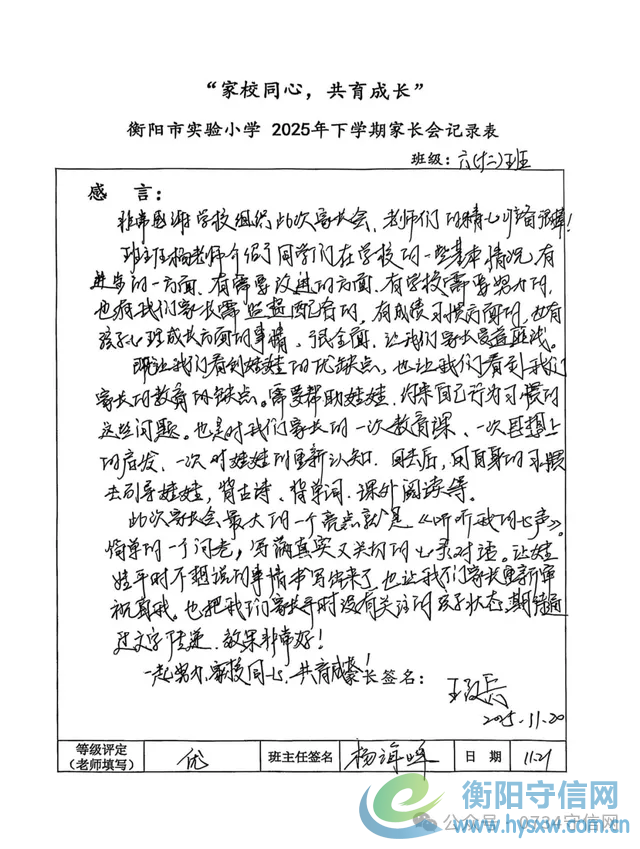 “家校同心，共育成长”
衡阳市实验小学 2025年下学期家长会记录表
班级：六(十二)班
感 言：
非常感谢学校组织此次家长会，老师们的精心准备很棒！
班主任杨老师介绍了同学们在学校的一些基本情况，有
进步的一方面，有需要改进的方面，有学校需要努力的，
也有我们家长需监督配合的，有成绩习惯方面的，也有
孩子心理成长方面的事情，很全面，让我们家长受益匪浅。
既让我们看到娃娃的优缺点，也让我们看到我们
家长的教育的缺点。需要帮助娃娃，约束自己行为习惯的
这些问题。也是对我们家长的一次教育课，一次思想上
的启发，一次对娃娃的重新认知。回去后，用自身的习惯
去引导娃娃，背古诗、背单词、课外阅读等。
此次家长会最大的一个亮点就是《听听我的心声》。
简单的一个问卷，写满真实又关切的心灵对话。让娃
娃平时不想说的事情书写出来了，也让我们家长重新审
视自我。也把我们家长平时没有关注的孩子状态，期待通
过文字传递，效果非常好！
一起努力，家校同心，共育成长！
家长签名：
2025.11.20
等级评定 （老师填写） 优 班主任签名 杨海峰 日 期 11.21
衡阳守信网
公众号·0734守信网
www.hysxw.com.cn